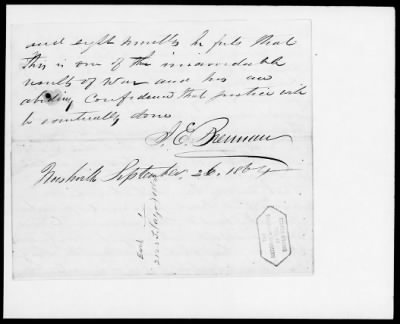 and eight months he feels that
this is one of the unavoidable
results of war and has an
abiding confidence that justice will
be eventually done
J. E. Brennan
Nashville September 26. 1864